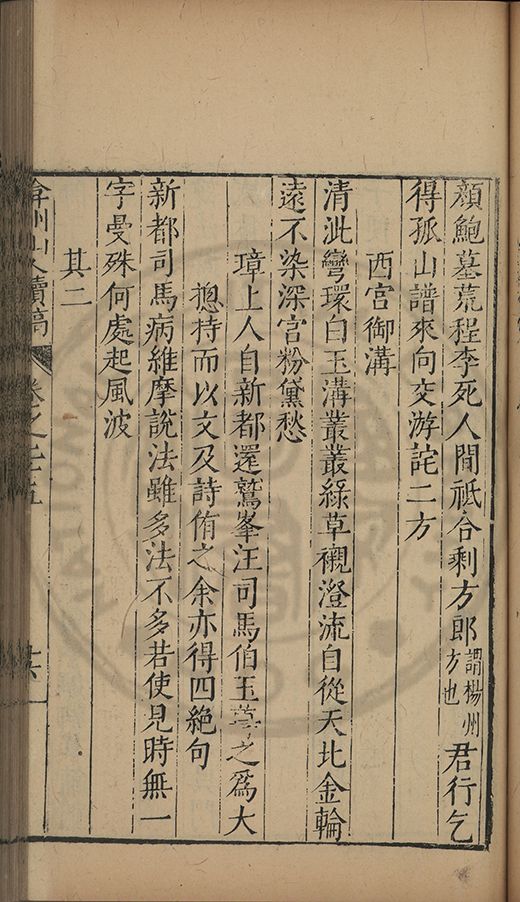 顏鮑墓荒程李死人間秪合剩方郎謂楊州方也君行乞
得孤山譜來向交游詫二方
西宮御溝
清泚彎環白玉溝叢叢綠草襯澄流自從天北金輪
遠不染深宮粉黛愁
璋上人自新都還鷲峯汪司馬伯玉蓴之爲大
摠持而以文及詩侑之余亦得四絶句
新都司馬病維摩說法雖多法不多若使見時無一
字曼殊何處起風波
其二
弇州山人續稿 卷之二十五 十六